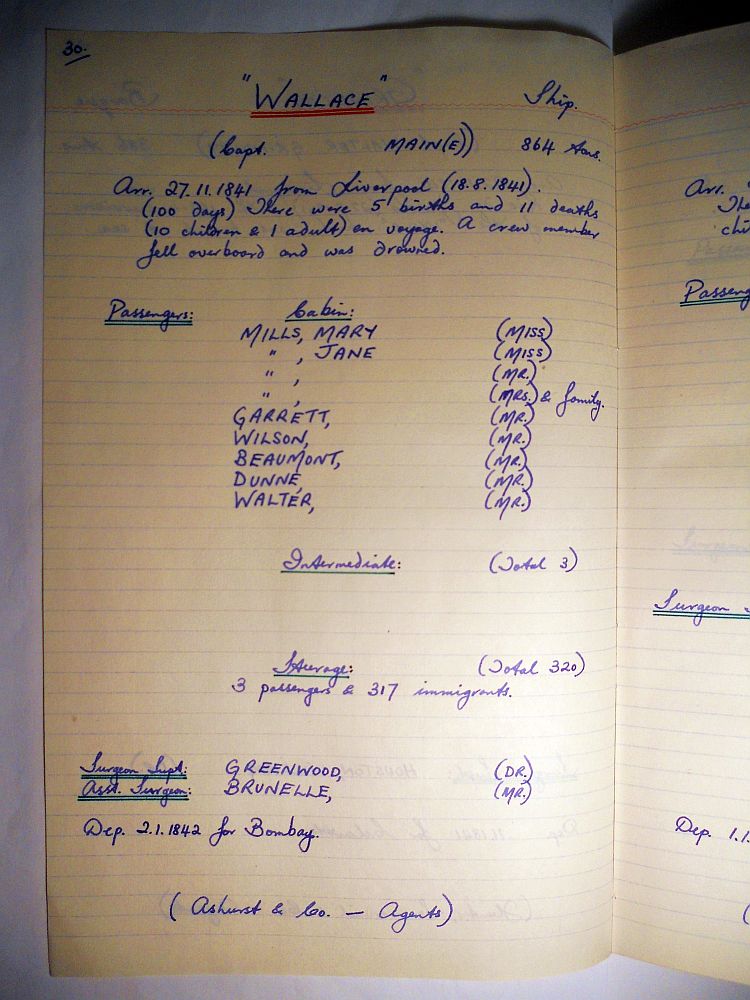 30.
"WALLACE" Ship.
(Capt. MAIN(E)) 864 tons.
Arr. 27.11.1841 from Liverpool (18.8.1841).
(100 days) There were 5 births and 11 deaths
(10 children & 1 adult) en voyage. A crew member
fell overboard and was drowned.
Passengers: Cabin:
MILLS, MARY (MISS)
" , JANE (MISS)
" , (MR.)
" , (MRS.) & family.
GARRETT, (MR.)
WILSON, (MR.)
BEAUMONT, (MR.)
DUNNE, (MR.)
WALTER, (MR.)
Intermediate: (Total 3)
Steerage: (Total 320)
3 passengers & 317 immigrants.
Surgeon Supt: GREENWOOD, (DR.)
Asst. Surgeon: BRUNELLE, (MR.)
Dep. 2.1.1842 for Bombay.
(Ashurst & Co. — Agents)
Arr.
Surgeon
Dep. 1.1.